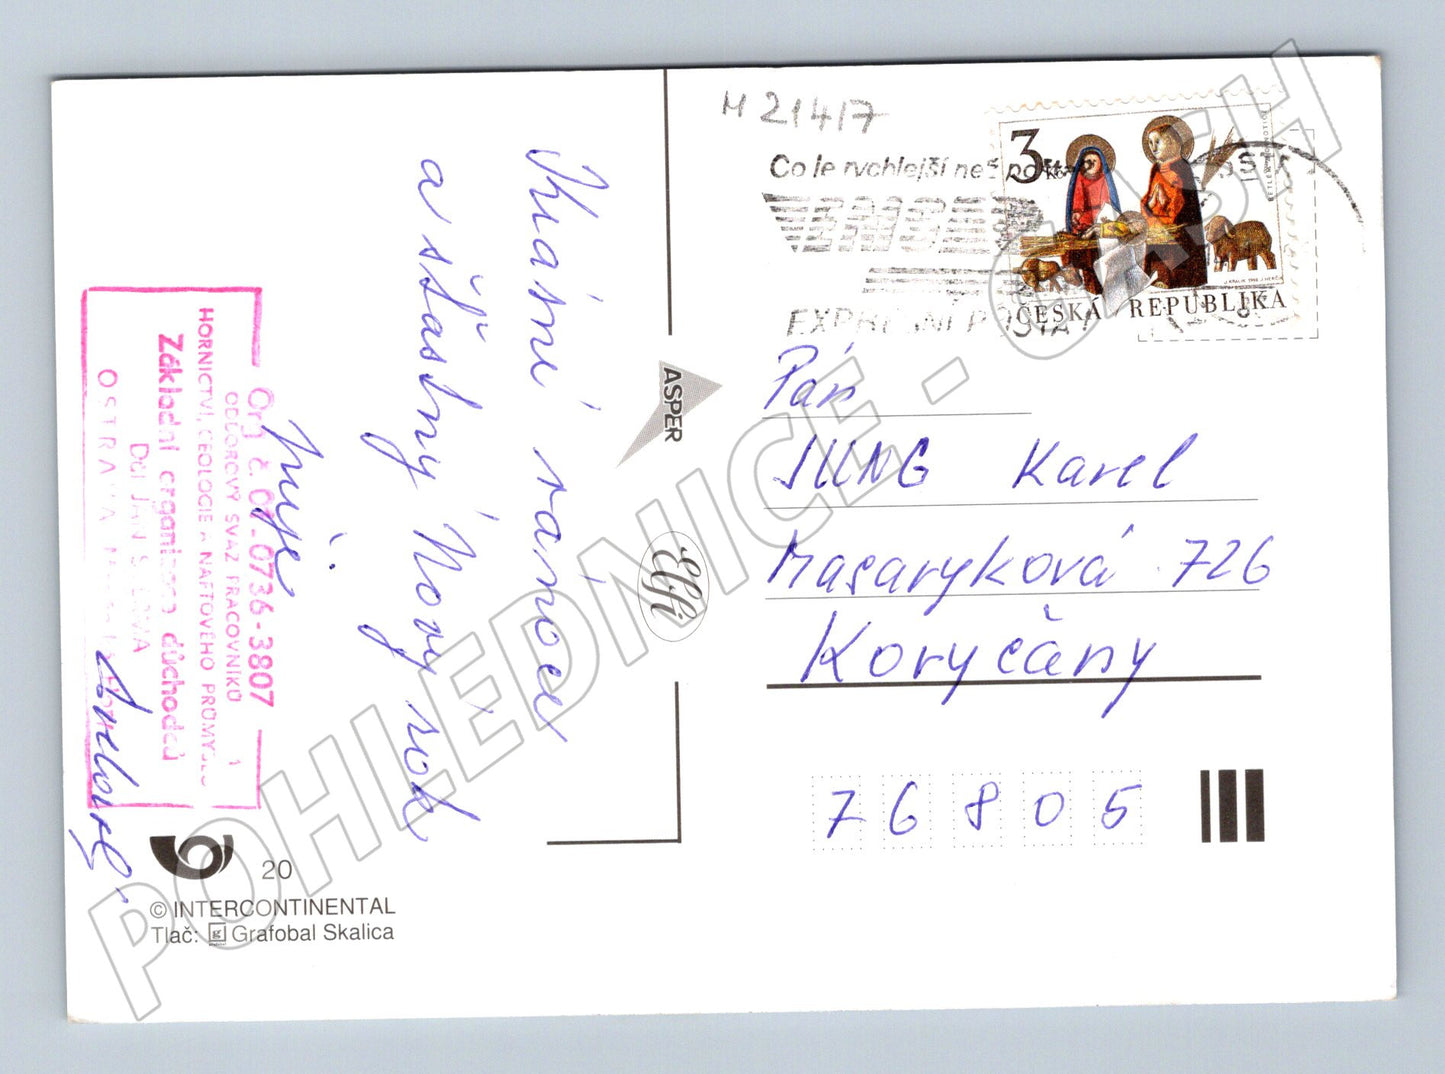 Krásné vánoce
a šťastný Nový rok
přeje
Org. č. 07-0736-3807
ODBOROVÝ SVAZ PRACOVNÍKŮ
HORNICTVÍ, GEOLOGIE A NAFTOVÉHO PRŮMYSLU
Základní organizace důchodců
Důl JAN ŠVERMA
OSTRAVA
20
© INTERCONTINENTAL
Tlač: g Grafobal Skalica
ASPER
Elfi
M 21417
Co le rychlejší než pošta?
EMS
EXPRESNÍ POŠTA!
3 Kč
ČESKÁ REPUBLIKA
Pán
JUNG Karel
Masaryková 726
Koryčany
76805
POHLEDNICE - CASH